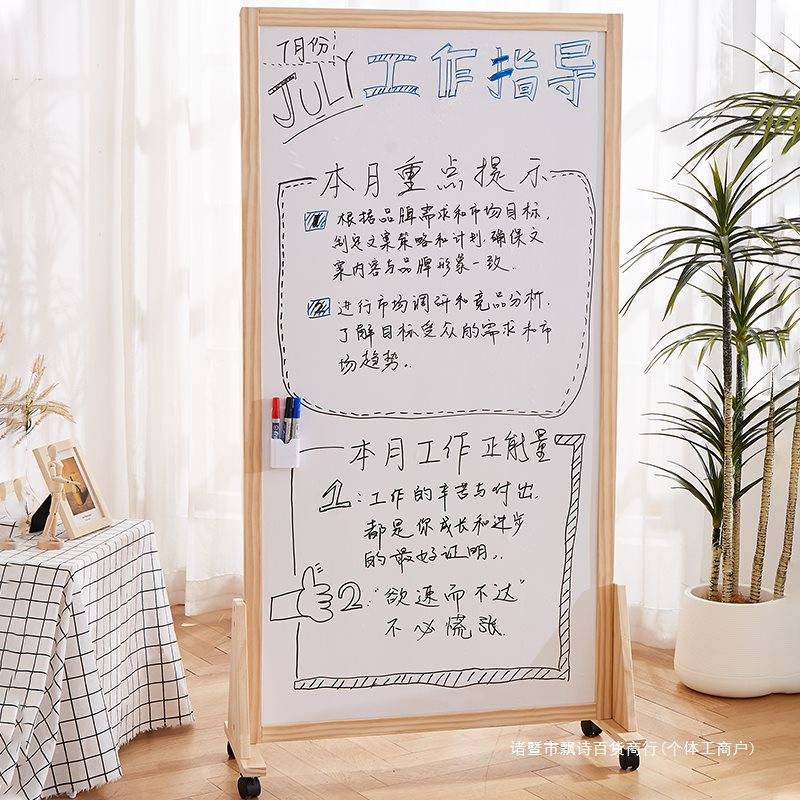 7月份
JULY 工作指导
本月重点提示
1 根据品牌需求和市场目标,
制定文案策略和计划.确保文
案内容与品牌形象一致.
2 进行市场调研和竞品分析,
了解目标受众的需求和市
场趋势.
本月工作正能量
1:工作的辛苦与付出.
都是你成长和进步
的最好证明.
2:“欲速而不达”
不必慌张.
诸暨市飘诗百货商行(个体工商户)